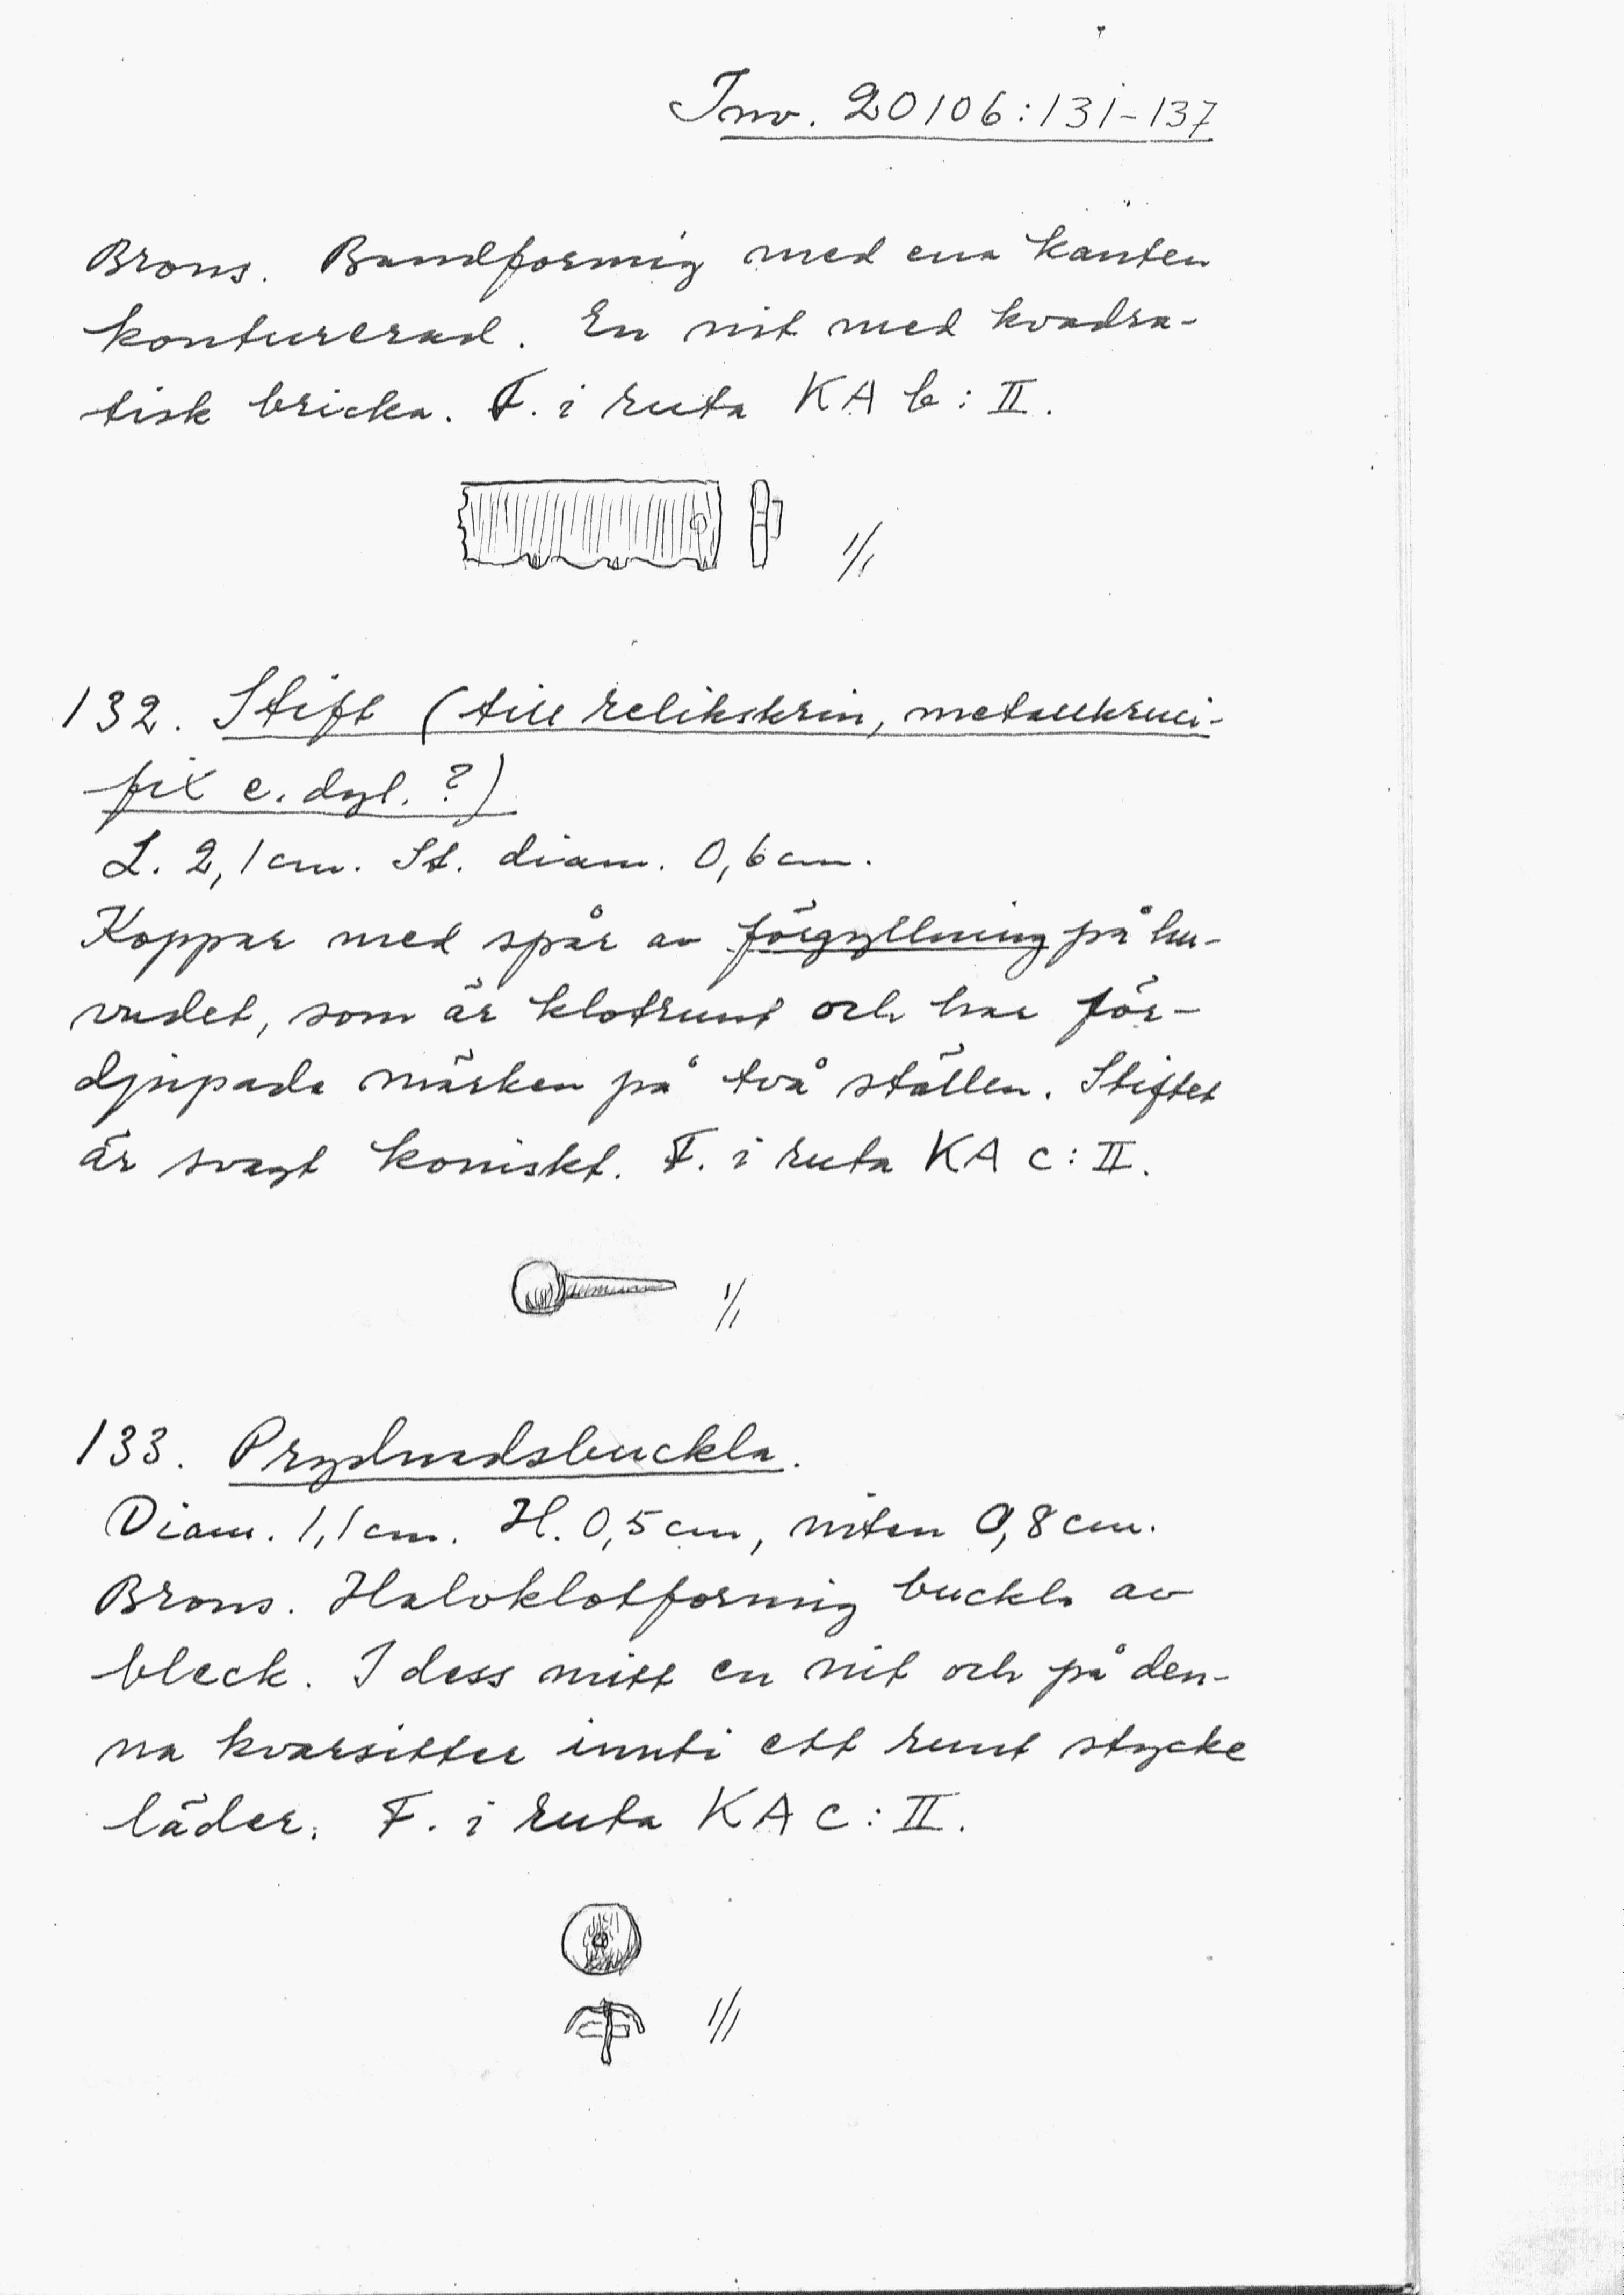 Inv. 20106:131-137
Brons. Bandformig med ena kanten
konturerad. En nit med kvadra-
tisk bricka. F. i ruta KA b: II.
1/1
132. Stift (till relikskrin, metallkruci-
fix e. dyl. ?)
L. 2,1 cm. St. diam. 0,6 cm.
Koppar med spår av förgyllning på hu-
vudet, som är klotrunt och har för-
djupade märken på två ställen. Stiftet
är svagt koniskt. F. i ruta KA c: II.
1/1
133. Prydnadsbuckla.
Diam. 1,1 cm. H. 0,5 cm, niten 0,8 cm.
Brons. Halvklotformig buckla av
bleck. I dess mitt en nit och på den-
na kvarsitter innti ett runt stycke
läder. F. i ruta KA c: II.
1/1